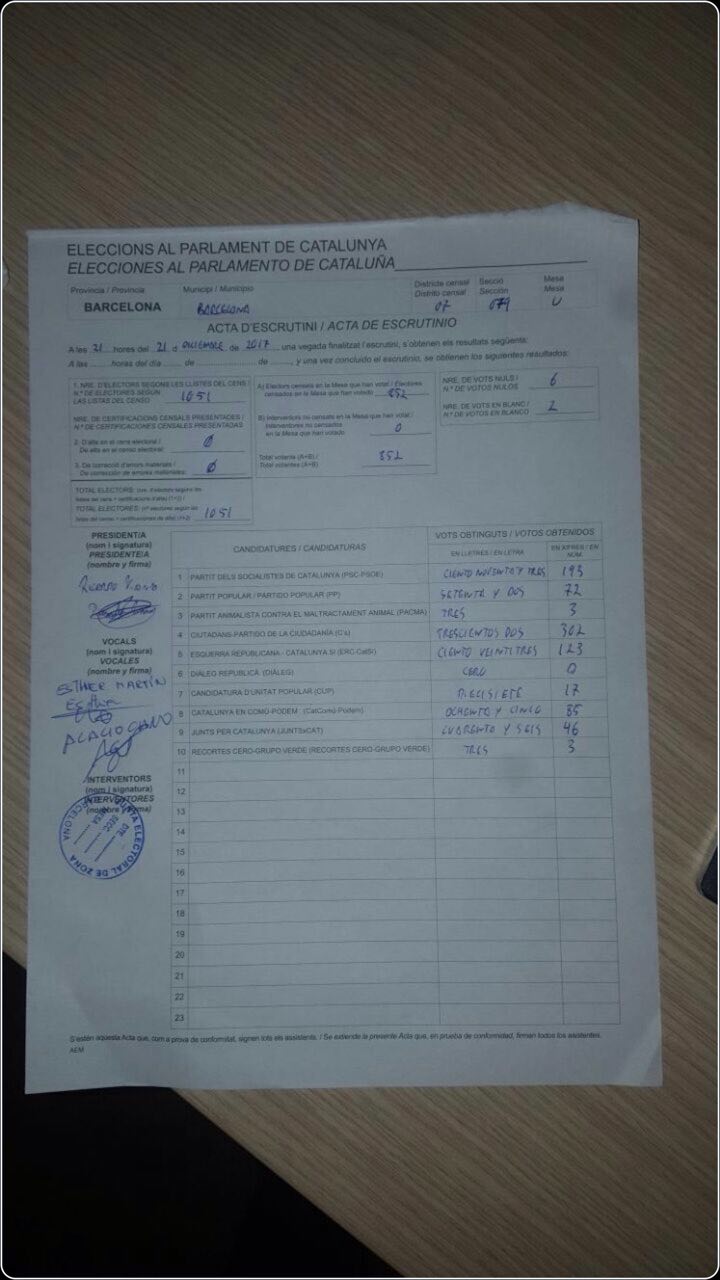 ELECCIONS AL PARLAMENT DE CATALUNYA
ELECCIONES AL PARLAMENTO DE CATALUÑA
Provincia / Provincia Municipi / Municipio Districte censal Secció Mesa
Distrito censal Sección Mesa
BARCELONA BARCELONA 07 079 U
ACTA D'ESCRUTINI / ACTA DE ESCRUTINIO
A les 21 hores del 21 d DICIEMBRE de 2017 una vegada finalitzat l'escrutini, s'obtenen els resultats següents:
A las horas del día de de , y una vez concluido el escrutinio, se obtienen los siguientes resultados:
1. NRE. D'ELECTORS SEGONS LES LLISTES DEL CENS /
N.º DE ELECTORES SEGÚN
LAS LISTAS DEL CENSO 1051
NRE. DE CERTIFICACIONS CENSALS PRESENTADES /
N.º DE CERTIFICACIONES CENSALES PRESENTADAS
2. D'alta en el cens electoral /
De alta en el censo electoral: 0
3. De correcció d'errors materials /
De corrección de errores materiales: 0
TOTAL ELECTORS: (nre. d'electors segons les
llistes del cens + certificacions d'alta) (1+2) /
TOTAL ELECTORES: (nº electores según las
listas del censo + certificaciones de alta) (1+2) 1051
A) Electors censats en la Mesa que han votat / Electores
censados en la Mesa que han votado 852
B) Interventors no censats en la Mesa que han votat /
Interventores no censados
en la Mesa que han votado 0
Total votants (A+B) /
Total votantes (A+B) 852
NRE. DE VOTS NULS /
N.º DE VOTOS NULOS 6
NRE. DE VOTS EN BLANC /
N.º DE VOTOS EN BLANCO 2
PRESIDENT/A
(nom i signatura)
PRESIDENTE/A
(nombre y firma)
VOCALS
(nom i signatura)
VOCALES
(nombre y firma)
ESTHER MARTÍN
Esther
INTERVENTORS
(nom i signatura)
INTERVENTORES
(nombre y firma)
JUNTA ELECTORAL DE ZONA
BARCELONA
DTE.
SECC.
MESA
CANDIDATURES / CANDIDATURAS VOTS OBTINGUTS / VOTOS OBTENIDOS
EN LLETRES / EN LETRA EN XIFRES / EN NÚM.
1 PARTIT DELS SOCIALISTES DE CATALUNYA (PSC-PSOE) CIENTO NOVENTA Y TRES 193
2 PARTIT POPULAR / PARTIDO POPULAR (PP) SETENTA Y DOS 72
3 PARTIT ANIMALISTA CONTRA EL MALTRACTAMENT ANIMAL (PACMA) TRES 3
4 CIUTADANS-PARTIDO DE LA CIUDADANÍA (C's) TRESCIENTOS DOS 302
5 ESQUERRA REPUBLICANA - CATALUNYA SÍ (ERC-CatSí) CIENTO VEINTITRES 123
6 DIÀLEG REPUBLICÀ (DIÀLEG) CERO 0
7 CANDIDATURA D'UNITAT POPULAR (CUP) DIECISIETE 17
8 CATALUNYA EN COMÚ-PODEM (CatComú-Podem) OCHENTA Y CINCO 85
9 JUNTS PER CATALUNYA (JUNTSxCAT) CUARENTA Y SEIS 46
10 RECORTES CERO-GRUPO VERDE (RECORTES CERO-GRUPO VERDE) TRES 3
11
12
13
14
15
16
17
18
19
20
21
22
23
S'estén aquesta Acta que, com a prova de conformitat, signen tots els assistents. / Se extiende la presente Acta que, en prueba de conformidad, firman todos los asistentes.
AEM